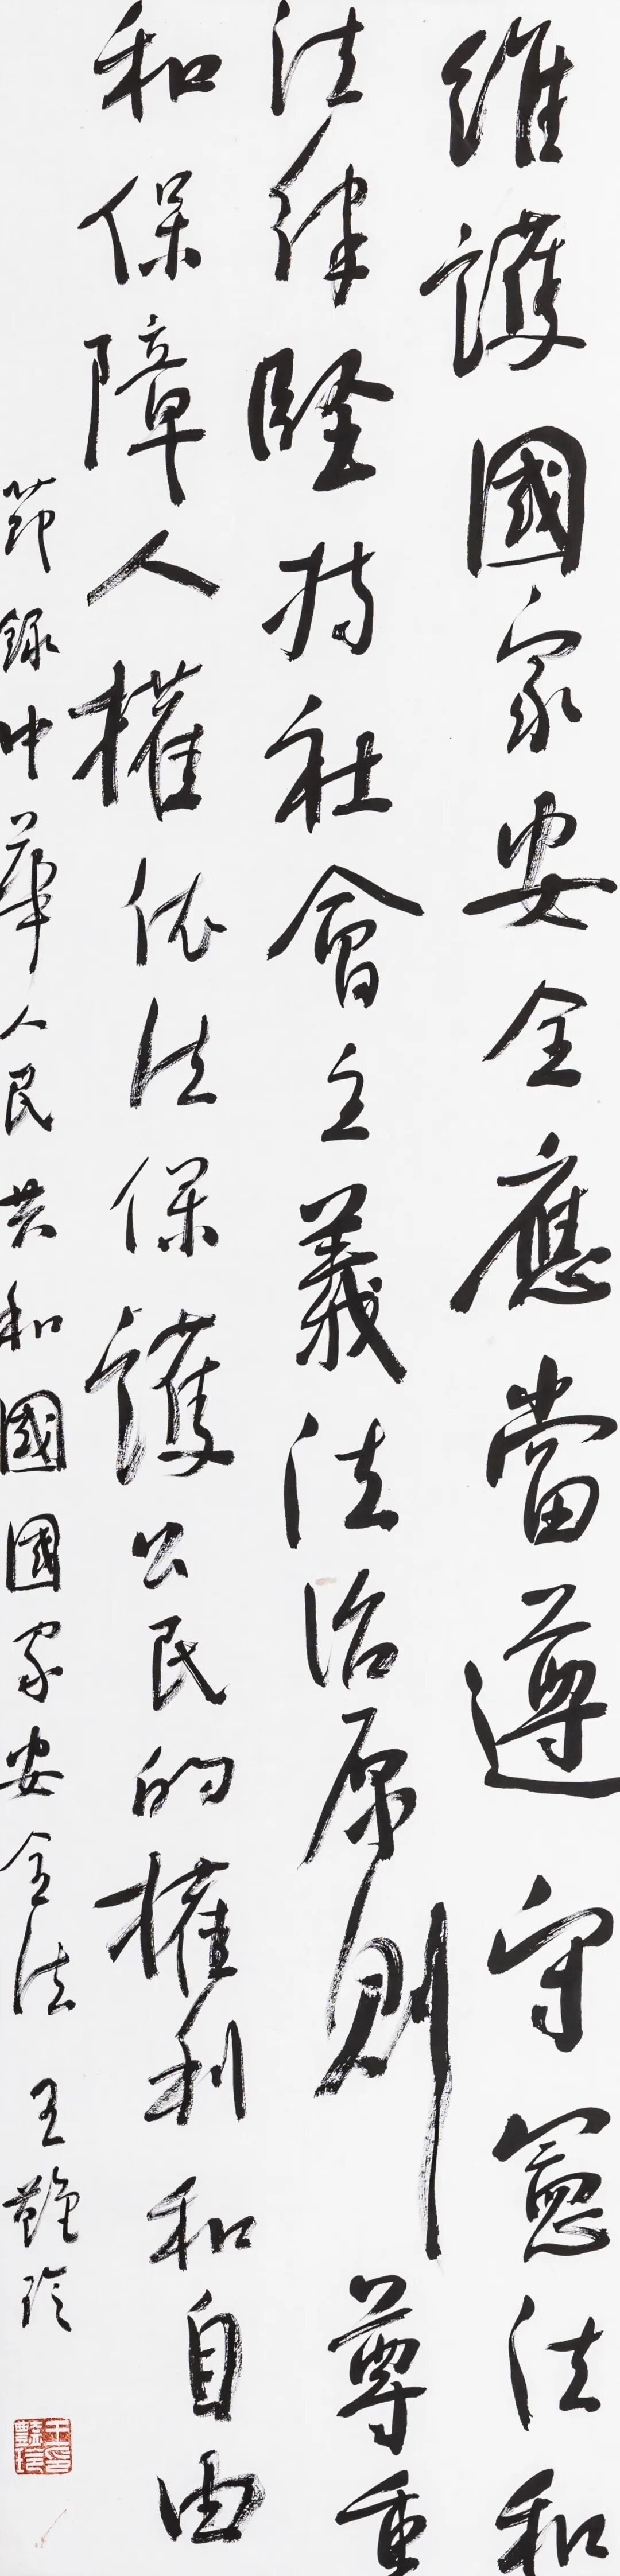 維護國家安全應當遵守憲法和
法律堅持社會主義法治原則尊重
和保障人權依法保護公民的權利和自由
節録中華人民共和國國家安全法 王艷玲
王艷玲印